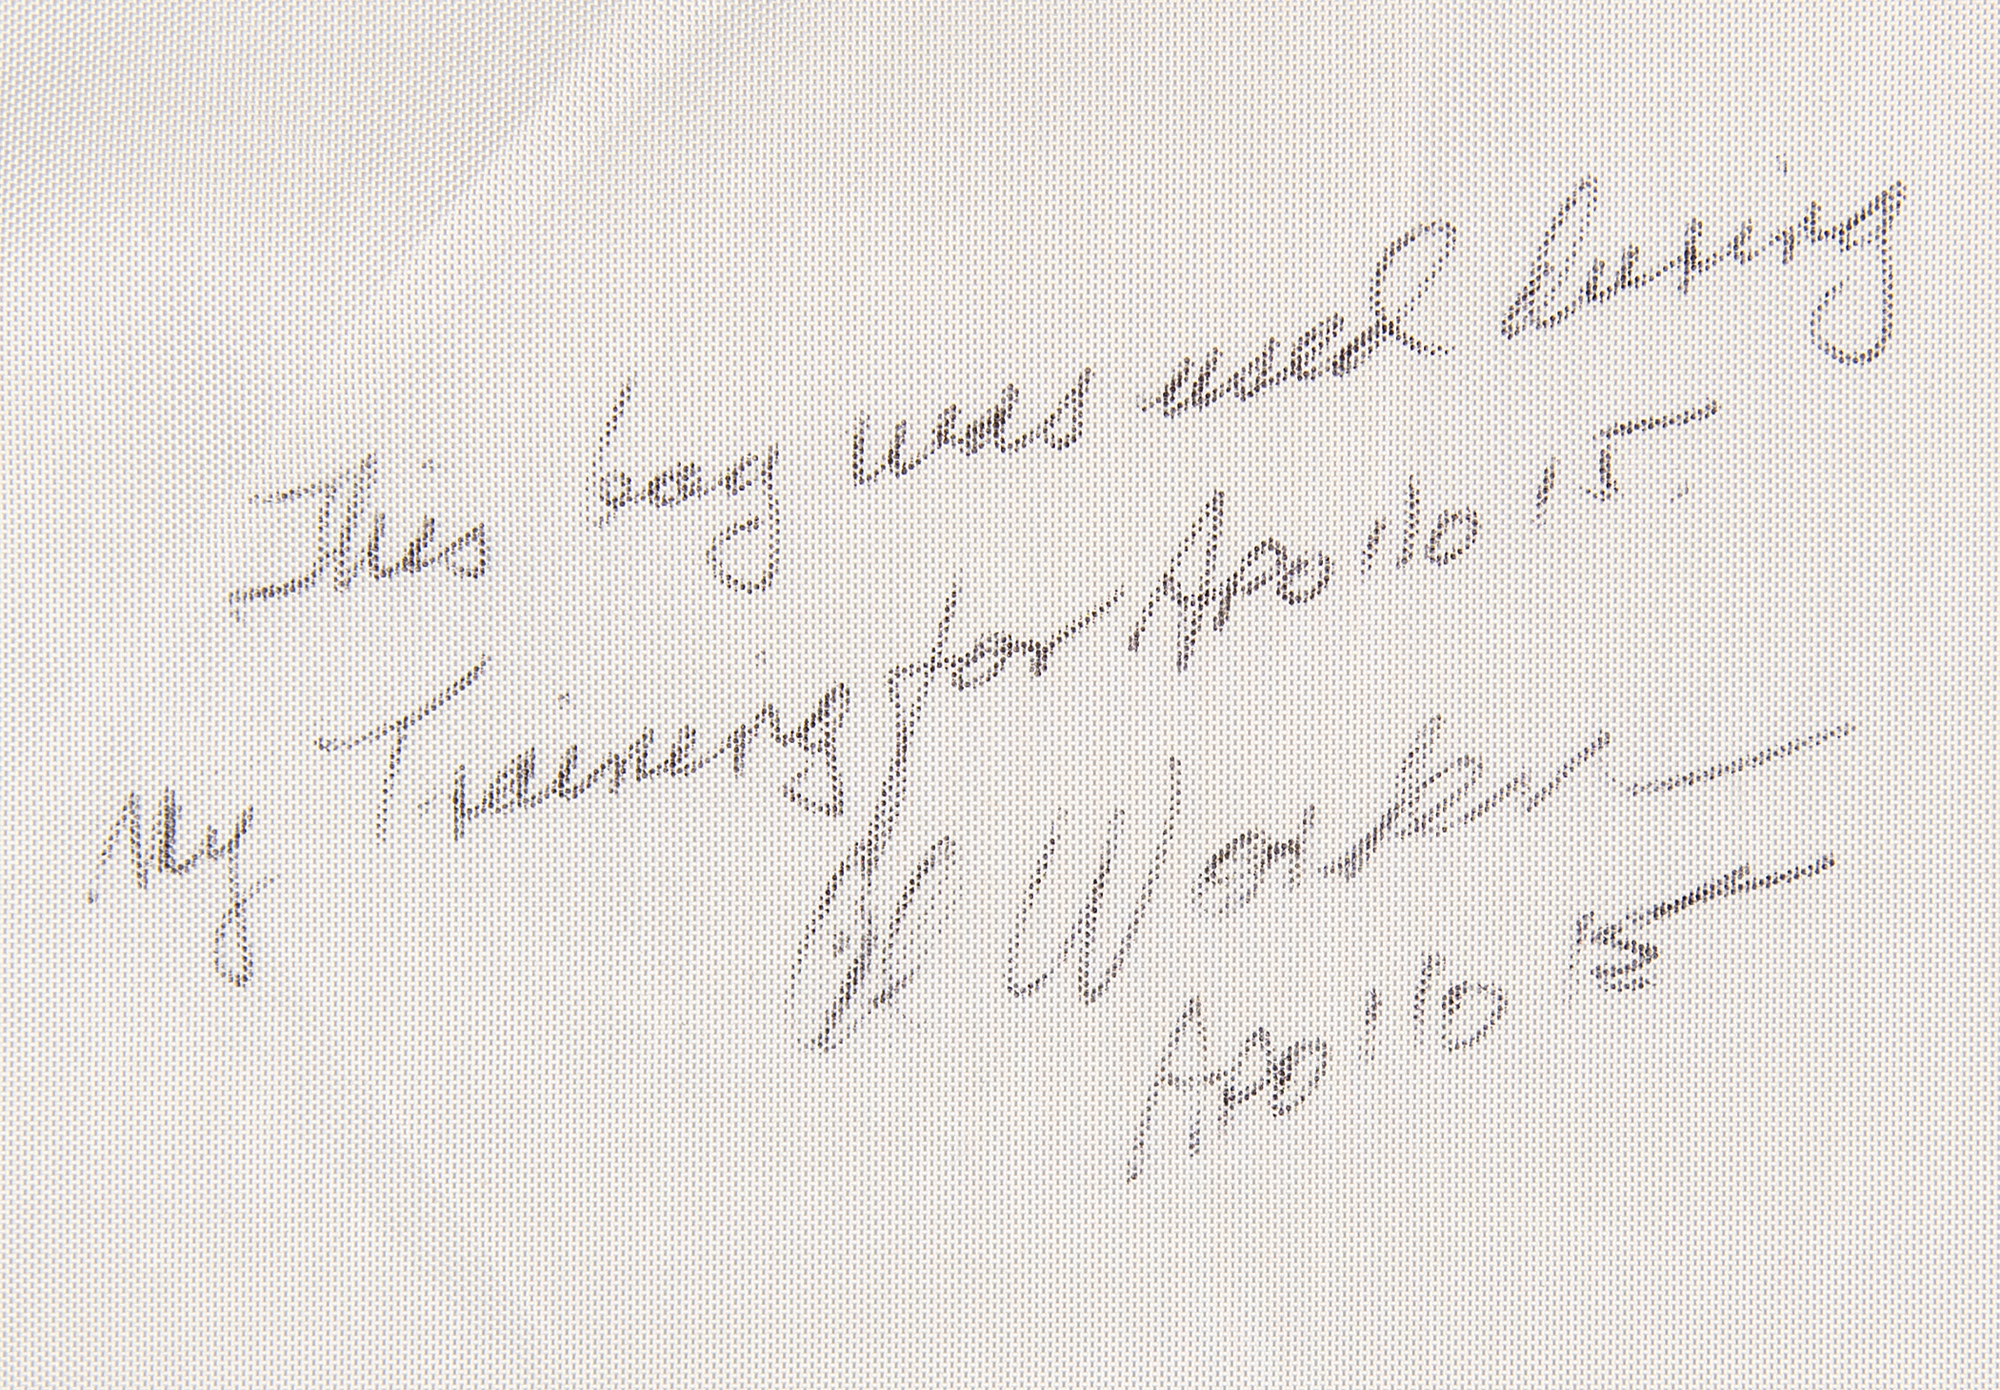 This bag was used during
My Training for Apollo 15.
Al Worden
Apollo 15